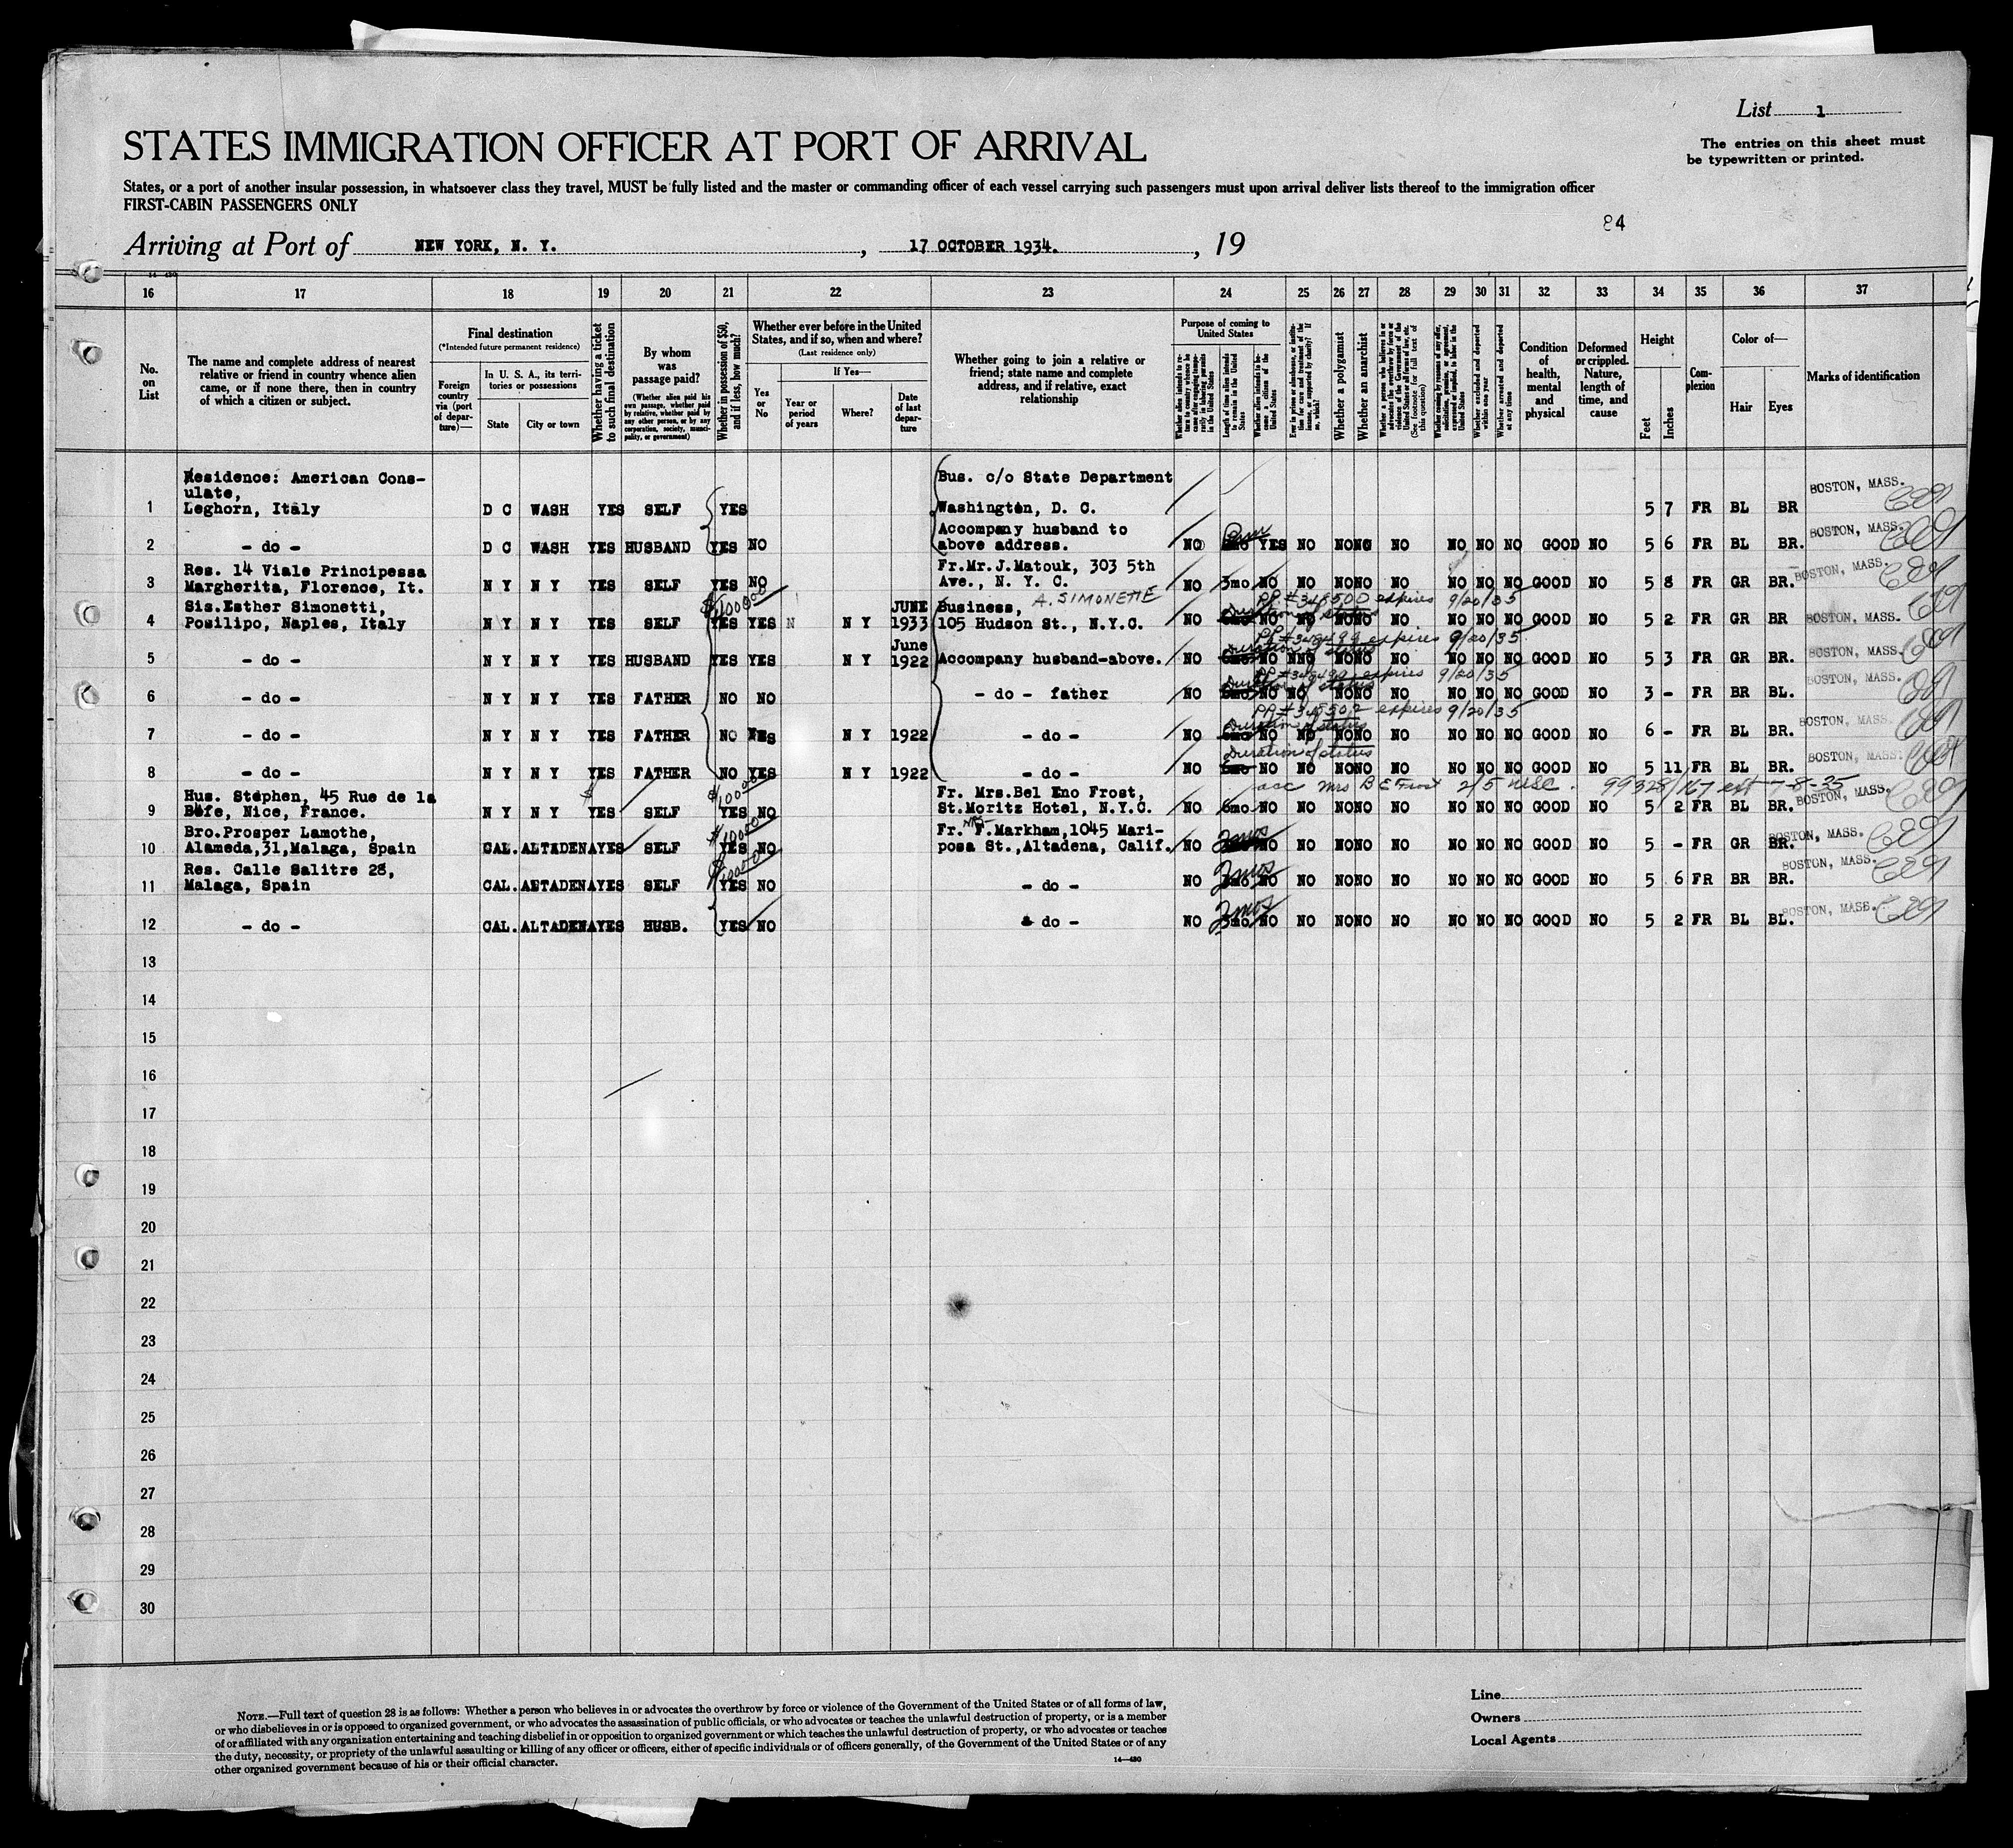 List 1
The entries on this sheet must
be typewritten or printed.
STATES IMMIGRATION OFFICER AT PORT OF ARRIVAL
States, or a port of another insular possession, in whatsoever class they travel, MUST be fully listed and the master or commanding officer of each vessel carrying such passengers must upon arrival deliver lists thereof to the immigration officer
FIRST-CABIN PASSENGERS ONLY
84
Arriving at Port of NEW YORK, N. Y. , 17 OCTOBER 1934. , 19
16 17 18 19 20 21 22 23 24 25 26 27 28 29 30 31 32 33 34 35 36 37
No.
on
List
The name and complete address of nearest
relative or friend in country whence alien
came, or if none there, then in country
of which a citizen or subject.
Final destination
(*Intended future permanent residence)
Foreign
country
via (port
of depar-
ture)—
In U. S. A., its terri-
tories or possessions
State
City or town
Whether having a ticket
to such final destination
By whom
was
passage paid?
(Whether alien paid his
own passage, whether paid
by relative, whether paid by
any other person, or by any
corporation, society, munici-
pality, or government)
Whether in possession of $50,
and if less, how much?
Whether ever before in the United
States, and if so, when and where?
(Last residence only)
Yes
or
No
If Yes—
Year or
period
of years
Where?
Date
of last
depar-
ture
Whether going to join a relative or
friend; state name and complete
address, and if relative, exact
relationship
Purpose of coming to
United States
Whether alien intends to re-
turn to country whence he
came after engaging tempo-
rarily in laboring pursuits
in the United States
Length of time alien intends
to remain in the United
States
Whether alien intends to be-
come a citizen of the
United States
Ever in prison or almshouse, or institu-
tion for care and treatment of the
insane, or supported by charity? If
so, which?
Whether a polygamist
Whether an anarchist
(See footnote for full text of
this question)
Whether excluded and deported
within one year
Whether arrested and deported
at any time
Condition
of
health,
mental
and
physical
Deformed
or crippled.
Nature,
length of
time, and
cause
Height
Feet
Inches
Com-
plexion
Color of—
Hair
Eyes
Marks of identification
Residence: American Cons-
ulate, Bus. c/o State Department
1 Leghorn, Italy D C WASH YES SELF YES Washington, D. C. 5 7 FR BL BR BOSTON, MASS.
Accompany husband to
2 - do - D C WASH YES HUSBAND YES NO above address. NO YES NO NO NO NO NO NO NO GOOD NO 5 6 FR BL BR. BOSTON, MASS.
Res. 14 Viale Principessa Fr.Mr.J.Matouk, 303 5th
3 Margherita, Florence, It. N Y N Y YES SELF YES NO Ave., N. Y. C. NO 3mo NO NO NO NO NO NO NO NO GOOD NO 5 8 FR GR BR. BOSTON, MASS.
Sis.Esther Simonetti, $100000 JUNE Business, A. SIMONETTE PP. #348500 expires 9/20/35
4 Posilipo, Naples, Italy N Y N Y YES SELF YES YES N N Y 1933 105 Hudson St., N.Y.C. NO Duration of status NO NO NO NO NO NO NO NO GOOD NO 5 2 FR GR BR BOSTON, MASS.
June PP #348499 expires 9/20/35
5 - do - N Y N Y YES HUSBAND YES YES N Y 1922 Accompany husband-above. NO Duration of status NO NNO NO NO NO NO NO NO GOOD NO 5 3 FR GR BR. BOSTON, MASS.
expires 9/20/35
6 - do - N Y N Y YES FATHER NO NO - do - father NO Duration of status NO NO NO NO NO NO NO NO GOOD NO 3 - FR BR BL. BOSTON, MASS.
PP #348502 expires 9/20/35
7 - do - N Y N Y YES FATHER NO YES N Y 1922 - do - NO Duration of status NO NO NO NO NO NO NO NO GOOD NO 6 - FR BL BR. BOSTON, MASS.
8 - do - N Y N Y YES FATHER NO YES N Y 1922 - do - NO Duration of status NO NO NO NO NO NO NO NO GOOD NO 5 11 FR BL BR. BOSTON, MASS.
Hus. Stephen, 45 Rue de la Fr. Mrs.Bel Eno Frost, acc Mrs B E Frost 99328/167 ext 7-8-35
9 Nice, France. N Y N Y YES SELF YES NO St.Moritz Hotel, N.Y.C. NO 6mo NO NO NO NO NO NO NO NO GOOD NO 5 2 FR BL BR. BOSTON, MASS.
Bro.Prosper Lamothe, Fr. Mrs F.Markham,1045 Mari-
10 Alameda,31,Malaga, Spain CAL. ALTADENA YES SELF YES NO posa St.,Altadena, Calif. NO 2mos NO NO NO NO NO NO NO NO GOOD NO 5 - FR GR BR. BOSTON, MASS.
Res. Calle Salitre 28,
11 Malaga, Spain CAL. ALTADENA YES SELF YES NO - do - NO 2mos NO NO NO NO NO NO NO NO GOOD NO 5 6 FR BR BR. BOSTON, MASS.
12 - do - CAL. ALTADENA YES HUSB. YES NO - do - NO 2mos 3mo NO NO NO NO NO NO NO NO GOOD NO 5 2 FR BL BL. BOSTON, MASS.
13
14
15
16
17
18
19
20
21
22
23
24
25
26
27
28
29
30
NOTE.—Full text of question 28 is as follows: Whether a person who believes in or advocates the overthrow by force or violence of the Government of the United States or of all forms of law,
or who disbelieves in or is opposed to organized government, or who advocates the assassination of public officials, or who advocates or teaches the unlawful destruction of property, or is a member
of or affiliated with any organization entertaining and teaching disbelief in or opposition to organized government or which teaches the unlawful destruction of property, or who advocates or teaches
the duty, necessity, or propriety of the unlawful assaulting or killing of any officer or officers, either of specific individuals or of officers generally, of the Government of the United States or of any
other organized government because of his or their official character.
14—480
Line
Owners
Local Agents